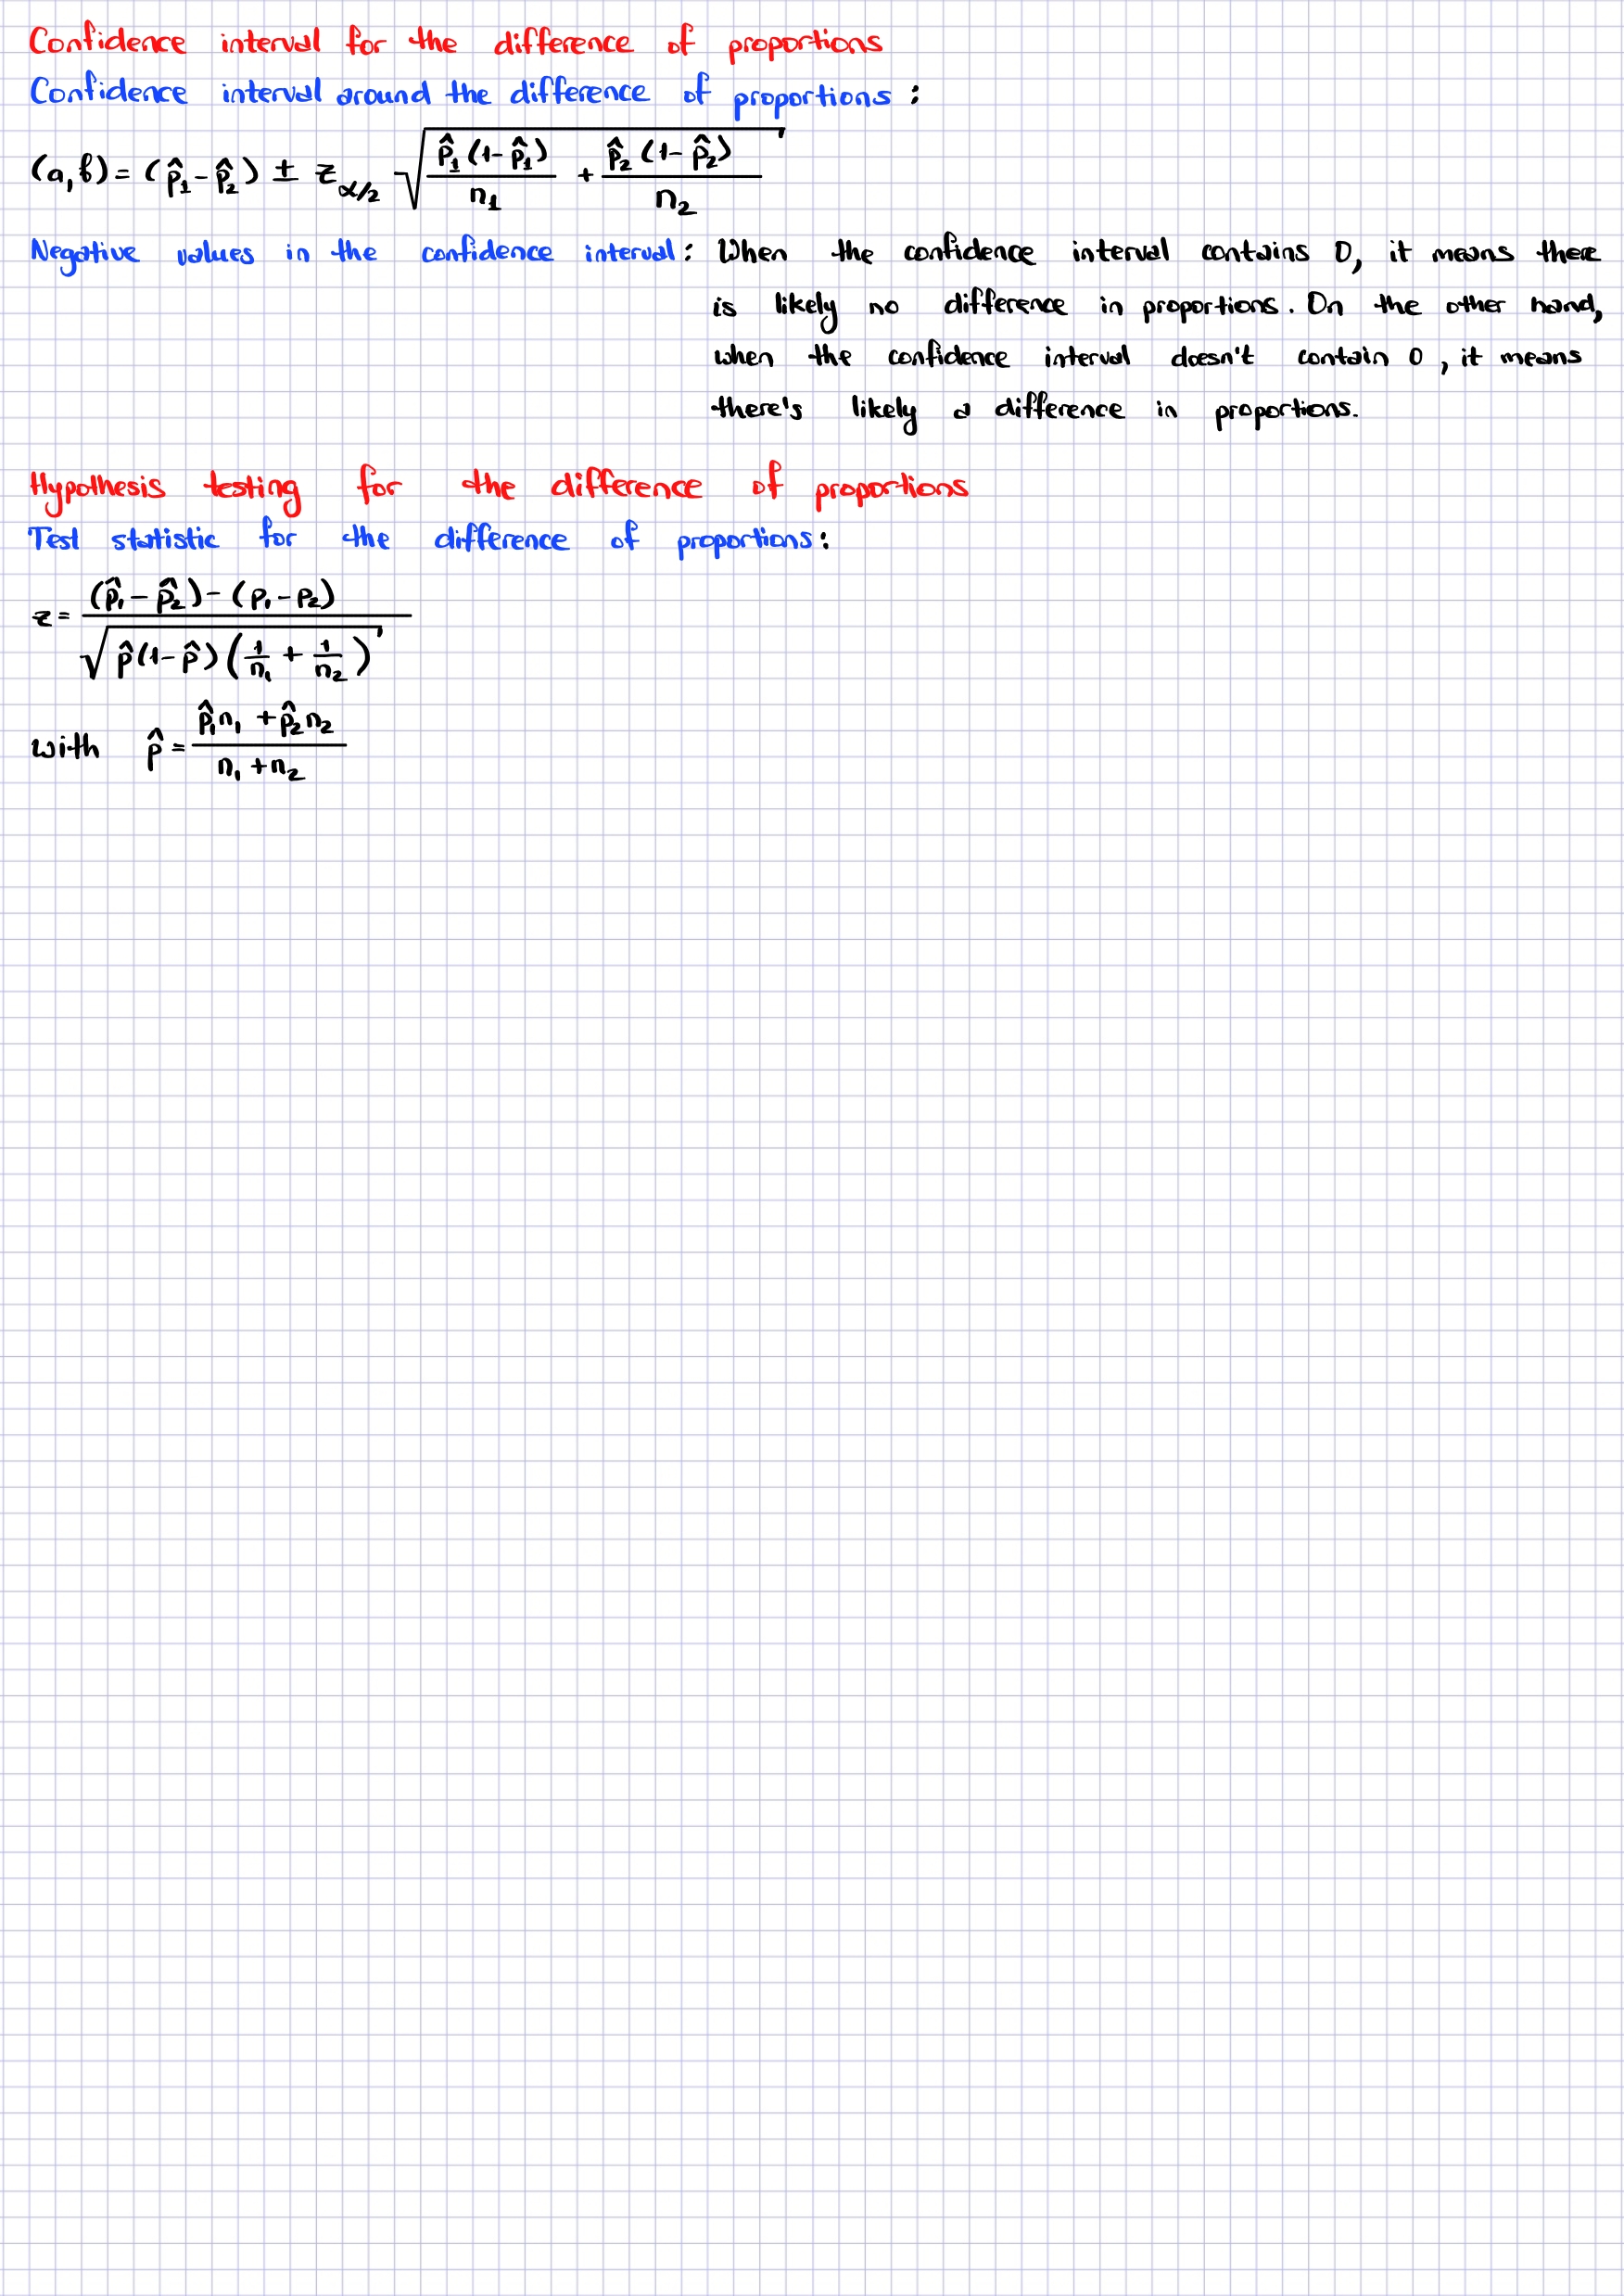 Confidence interval for the difference of proportions
Confidence interval around the difference of proportions:
(a,b) = (p̂₁ - p̂₂) ± z_α/2 √( p̂₁(1-p̂₁)/n₁ + p̂₂(1-p̂₂)/n₂ )
Negative values in the confidence interval: When the confidence interval contains 0, it means there
is likely no difference in proportions. On the other hand,
when the confidence interval doesn't contain 0, it means
there's likely a difference in proportions.
Hypothesis testing for the difference of proportions
Test statistic for the difference of proportions:
z = ((p̂₁ - p̂₂) - (p₁ - p₂)) / √( p̂(1-p̂)(1/n₁ + 1/n₂) )
with p̂ = (p̂₁n₁ + p̂₂n₂) / (n₁ + n₂)